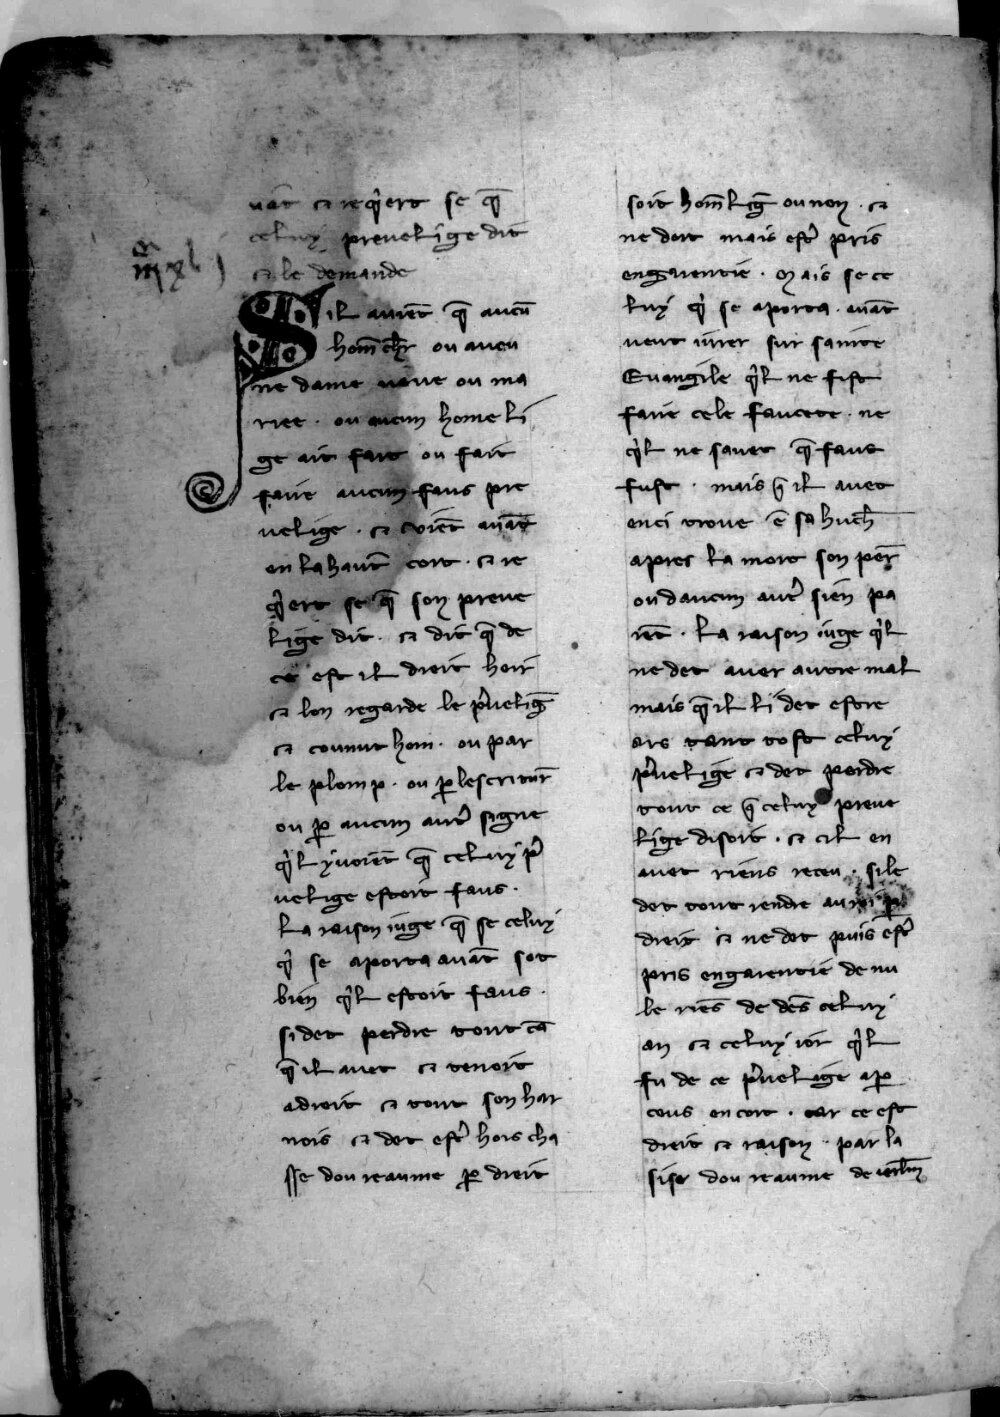 uāt ⁊ reqͥert se q̄
celuy preuelige dit
⁊ le demande
Sil auiēt q̄ aucū
hom̄ chlr̄ ou aucu
ne dame veue ou ma
riee . ou aucun home li
ge ait fait ou fait
faire aucun faus pre
uelige . ⁊ voiēt auāt
en la haut̄ cort . ⁊ re
qͥert se q̄ son preue
lige dit . ⁊ dit q̄ de
ce est il dreit heir
⁊ lon regarde le pͥueliḡ
⁊ connut hom . ou par
le plomp . ou ꝑ lescritur̄
ou ꝑ aucun autͤ signe
qͥl y voiēt q̄ celuy pͥ
uelige estoit faus .
La raison iuge q̄ se celuy
qͥ se aporta auāt sot
bien qͥl estoit faus .
si det perdre tout cā
q̄ il auet ⁊ tenoit
a dreit ⁊ tout son har
nois ⁊ det estͤ hors cha
sse dou reaume ꝑ dreit
soit hom̄ liḡ ou non . ⁊
ne doit mais estͤ pris
en garentie . Mais se ce
luy qͥ se aporta . auāt
veut iurer sur sainte
Euangile qͥl ne fist
faire cele faucete . ne
qͥl ne sauet q̄ faus
fust . mais q̄ il auet
enci troue ē sa huch̄
apres la mort son per̄
ou daucun autͤ sien pa
rēt . La raison iuge qͥl
ne det auer autre mal
mais q̄ il li det estre
ars tant tost celuy
pͥuelige ⁊ det perdre
tout ce q̄ celuy preue
lige disoit . ⁊ cil en
auet riens receu . si le
det tout rendre au roi ꝑ
dreit ⁊ ne det puis estͤ
pris en garentie de nu
le riēs de dēs celuy
an ⁊ celuy ior qͥl
fu de ce pͥuelige aꝑ
ceus en cort . car ce est
dreit ⁊ raison . par la
sise dou reaume de ierl̄m